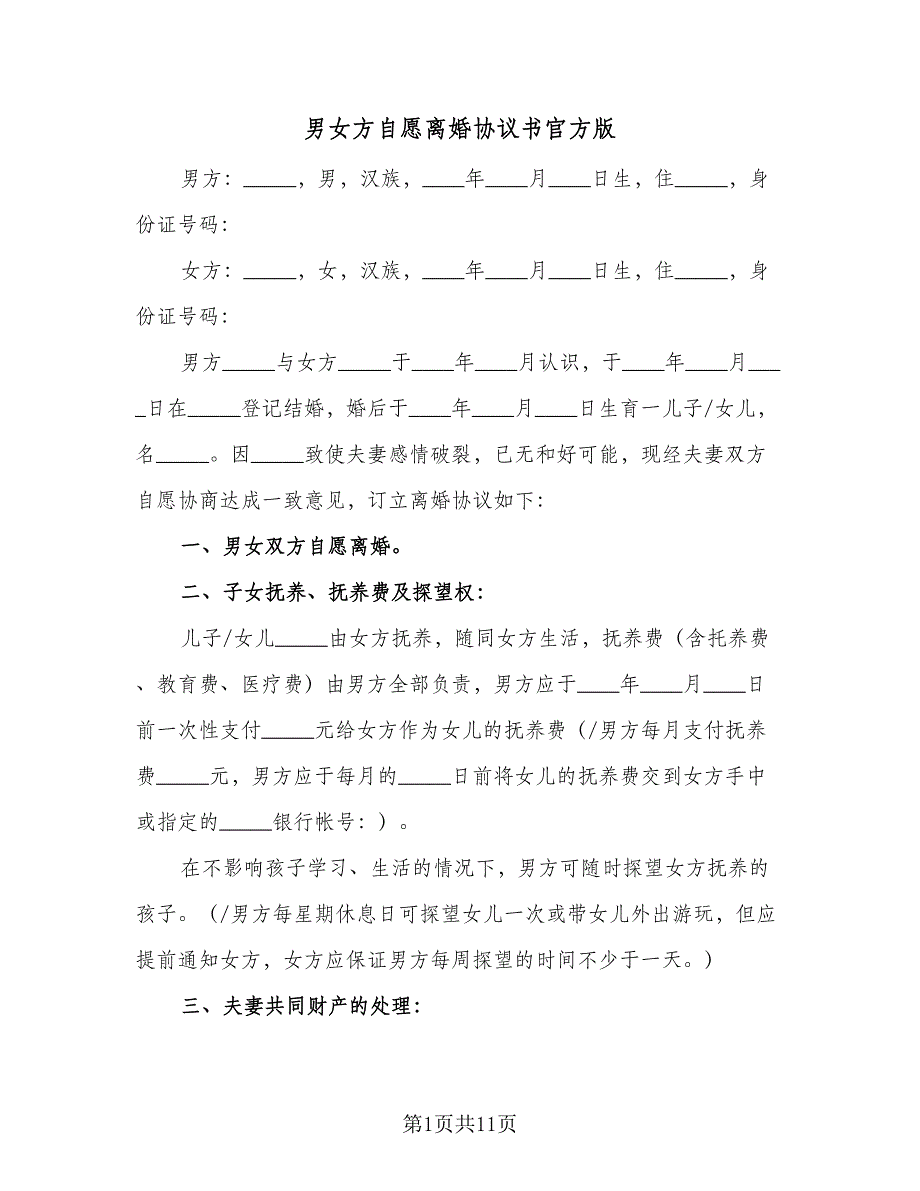 男女方自愿离婚协议书官方版
男方：_____，男，汉族，____年____月____日生，住_____，身
份证号码：
女方：_____，女，汉族，____年____月____日生，住_____，身
份证号码：
男方_____与女方_____于____年____月认识，于____年____月___
_日在_____登记结婚，婚后于____年____月____日生育一儿子/女儿，
名_____。因_____致使夫妻感情破裂，已无和好可能，现经夫妻双方
自愿协商达成一致意见，订立离婚协议如下：
一、男女双方自愿离婚。
二、子女抚养、抚养费及探望权：
儿子/女儿_____由女方抚养，随同女方生活，抚养费（含托养费
、教育费、医疗费）由男方全部负责，男方应于____年____月____日
前一次性支付_____元给女方作为女儿的抚养费（/男方每月支付抚养
费_____元，男方应于每月的_____日前将女儿的抚养费交到女方手中
或指定的_____银行帐号：）。
在不影响孩子学习、生活的情况下，男方可随时探望女方抚养的
孩子。（/男方每星期休息日可探望女儿一次或带女儿外出游玩，但应
提前通知女方，女方应保证男方每周探望的时间不少于一天。）
三、夫妻共同财产的处理：
第1页共11页